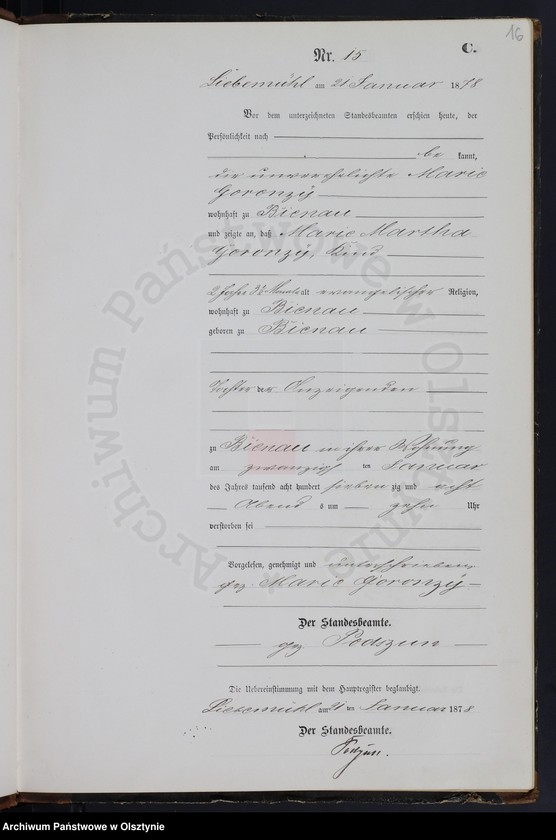 16
C.
Nr. 15
Liebemühl am 21 Januar 1878
Vor dem unterzeichneten Standesbeamten erschien heute, der
Persönlichkeit nach
be kannt,
die unverehelichte Marie
Goronzÿ
wohnhaft zu Bienau
und zeigte an, daß Marie Martha
Goronzÿ, Kind
2 Jahre 3½ Monate alt evangelischer Religion,
wohnhaft zu Bienau
geboren zu Bienau
Tochter der Anzeigenden
zu Bienau in ihrer Wohnung
am zwanzigsten Januar
des Jahres tausend acht hundert sieben zig und acht
Abend s um zehn Uhr
verstorben sei
Vorgelesen, genehmigt und unterschrieben
gez. Marie Goronzÿ
Der Standesbeamte.
gez. Podszun
Die Uebereinstimmung mit dem Hauptregister beglaubigt.
Liebemühl am 21 ten Januar 1878
Der Standesbeamte.
Podszun.
Archiwum Państwowe w Olsztynie
Archiwum Państwowe w Olsztynie